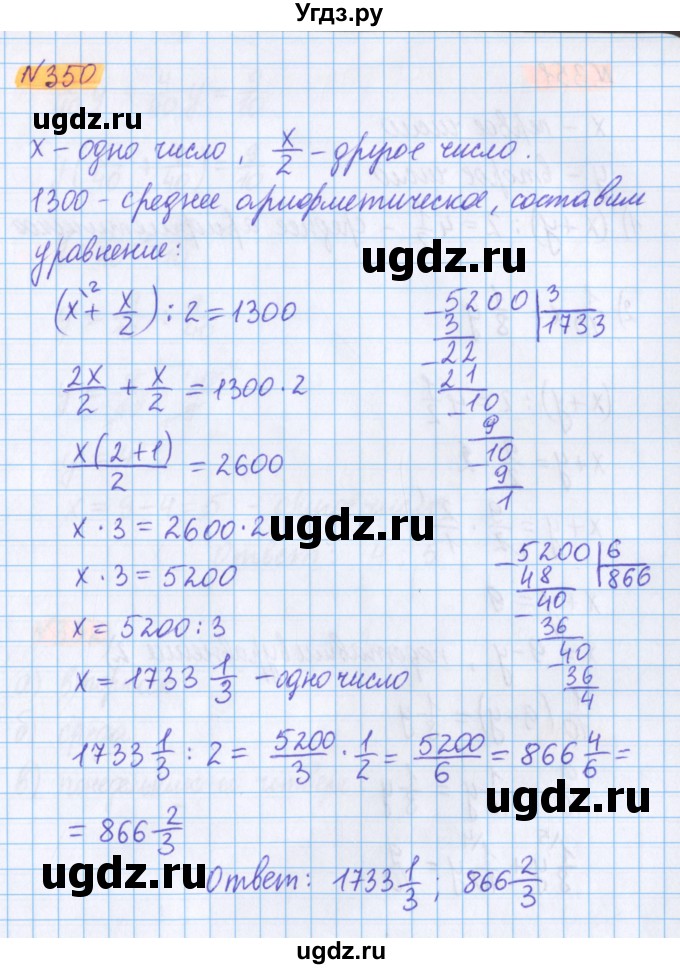 Угдз.ру
№350
ugdz.ru
x – одно число, x/2 – другое число.
1300 – среднее арифметическое, составим
уравнение:
ugdz.ru
(x\² + x/2) : 2 = 1300
2x/2 + x/2 = 1300 · 2
x(2+1)/2 = 2600
x · 3 = 2600 · 2
x · 3 = 5200
x = 5200 : 3
x = 1733 1/3 – одно число
5200 | 3
3 | 1733
22
21
10
9
10
9
1
ugdz.ru
5200 | 6
48 | 866
40
36
40
36
4
1733 1/3 : 2 = 5200/3 · 1/2 = 5200/6 = 866 4/6 =
ugdz.ru
= 866 2/3
ugdz.ru
Ответ: 1733 1/3 ; 866 2/3
ugdz.ru